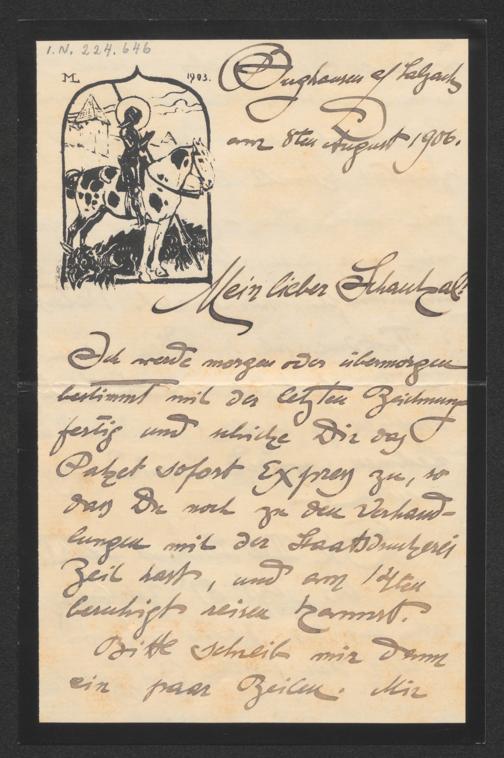 I.N. 224.646
ML 1903.
Burghausen a/ Salzach
am 8ten August 1906.
Mein lieber
Ich werde morgen oder übermorgen
bestimmt mit der letzten Zeichnung
fertig und schicke Dir das
Paket sofort Expreß zu, so
daß Du noch zu den Verhand-
lungen mit der Staatsdruckerei
Zeit hast, und am 14ten
beruhigt reisen kannst.
Bitte schreib mir dann
ein paar Zeilen. Mir